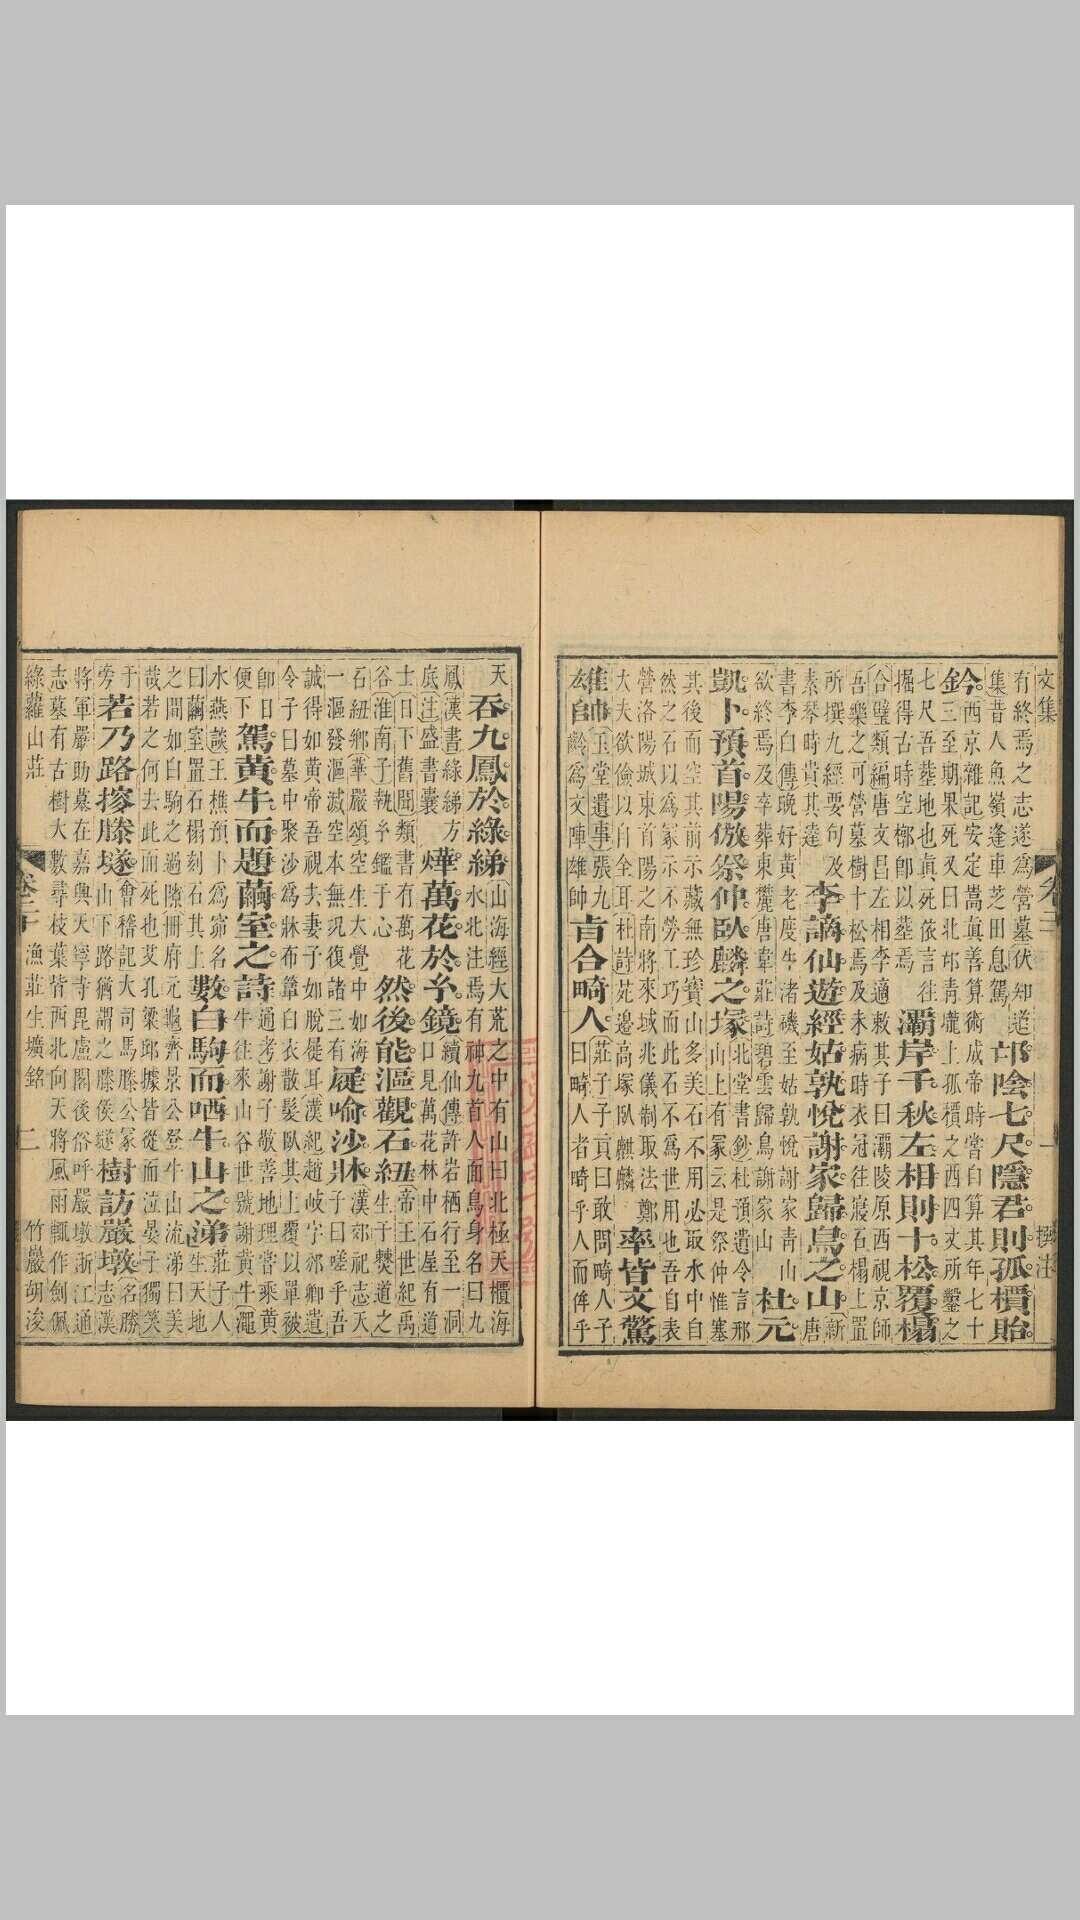 文集 卷二 一 撰注
有終焉之志遂為營墓伏知道
集昔人魚嶺逢車芝田息駕
邙陰七尺隱君則孤檟貽
鈐
西京雜記安定嵩真善算術成帝時嘗自算其年七十
三至期果死又曰北邙青壠上孤檟之西四丈所鑿之
七尺吾葬地也真死依言往
掘得古時空槨卽以葬焉
灞岸千秋左相則十松覆榻
合璧類編唐文昌左相李適敕其子曰灞陵原西視京師
吾樂之可營墓樹十松焉及未病時衣冠往寢石榻上置
所撰九經要句及
素琴時貴其達
李謫仙遊經姑孰悅謝家歸鳥之山
新
唐
書李白傳晚好黃老度牛渚磯至姑孰悅謝家青山
欲終焉及卒葬東麓唐韋莊詩碧雲歸鳥謝家山
杜元
凱卜預首陽倣祭仲臥麟之塚
北堂書鈔杜預遺令言邢
山上有冢云是祭仲惟塞
其後而空其前示藏無珍寶山多美石不用必取水中自
然之石以為冢示不勞工巧而此石不為世用也吾自表
營洛陽城東首陽之南將來域兆儀制取法鄭
大夫欲儉以自全耳杜詩苑邊高塚臥麒麟
率皆文驚
雄帥
玉堂遺事張九
齡為文陣雄帥
肯合畸人
莊子子貢曰敢問畸人子
曰畸人者畸乎人而侔乎
天
吞九鳳於綠綈
山海經大荒之中有山曰北極天櫃海
水北注焉有神九首人面鳥身名曰九
鳳漢書綠綈方
底注盛書囊
燁萬花於糸鏡
續仙傳許岩栖行至一洞
口見萬花林中石屋有道
士日下舊聞類書有萬花
谷淮南子執糸鑑于心
然後能漚觀石紐
帝王世紀禹
生于僰道之
石紐鄉華嚴頌空生大覺中如海
一漚發漚滅空本無況復諸三有
屣喻沙牀
漢郊祀志天
子曰嗟乎吾
誠得如黃帝吾視夫妻子如脫屣耳漢紀趙岐字邠卿遺
令子曰墓中聚沙為牀布簟白衣散髮臥其上覆以單被
卽日
便下
駕黃牛而題繭室之詩
通考謝子敬善地理嘗乘黃
牛往來山谷世號謝黃牛澠
水燕談王樵預卜為窮名
曰繭室置石榻刻石其上
數白駒而哂牛山之涕
莊子人
生天地
之間如白駒之過隙冊府元龜齊景公登牛山流涕曰美
哉若之何去此而死也艾孔梁邱據皆從而泣晏子獨笑
于
旁
若乃路摻滕
會稽記大司馬滕公冢
山下路猶謂之滕侯
樹訪嚴墩
名勝
志漢
將軍嚴助墓在嘉興天寧寺毘盧閣後俗呼嚴墩浙江通
志墓有古樹大數尋枝葉皆西北向天將風雨輒作劍佩
綠蘿山莊 卷二十 漁莊生壙銘 二 竹巖胡浚